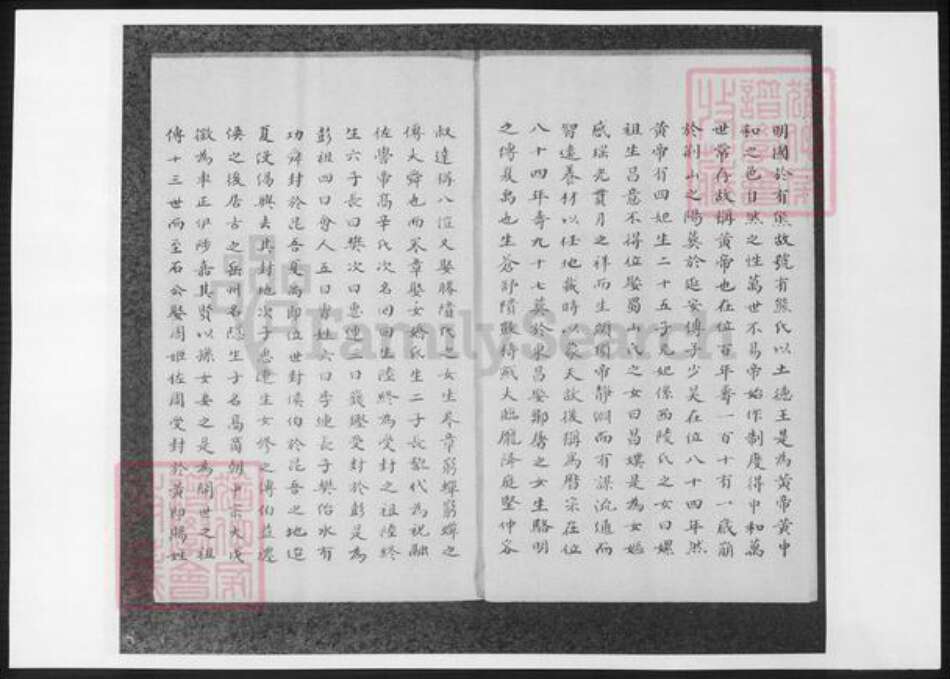 明國於有熊故號有熊氏以土德王是為黃帝黃中
和之色自然之性萬世不易帝始作制度得中和萬
世常存故稱黃帝也在位百年壽一百十有一歲崩
於荊山之陽葬於延安傳子少昊在位八十四年然
黃帝有四妃生二十五子元妃係西陵氏之女曰嫘
祖生昌意不得位娶蜀山氏之女曰昌嫫是為女媯
感瑤光貫月之祥而生顓頊帝靜淵而有謀流通而
智遠養材以任地載時以象天故後稱為曆宗在位
八十四年壽九十七葬於東昌娶鄒屠之女生駱明
之傳夏禹也生蒼舒隤敳檮戭大臨龐降庭堅仲容
叔達稱八愷又娶勝隤氏之女生卷章窮蟬窮蟬之
傳大舜也而卷章娶女媯氏生二子長黎代為祝融
佐嚳帝高辛氏次名回回生陸終為受封之祖陸終
生六子長曰樊次曰惠連三曰籛鏗受封於彭是為
彭祖四曰會人五曰曹姓六曰季連長子樊佁水有
功舜封於昆吾夏禹即位世封侯伯於昆吾之地逆
夏浸傷與去其封地次子惠連生女修之傳伯益遷
侯之後居古之 州名隱生子名高 朝中宗大戊
徵為車正伊陟嘉其賢以孫女妻之是為開世之祖
傳十三世而至石公娶周姬佐周受封於黃卽賜姓
FamilySearch